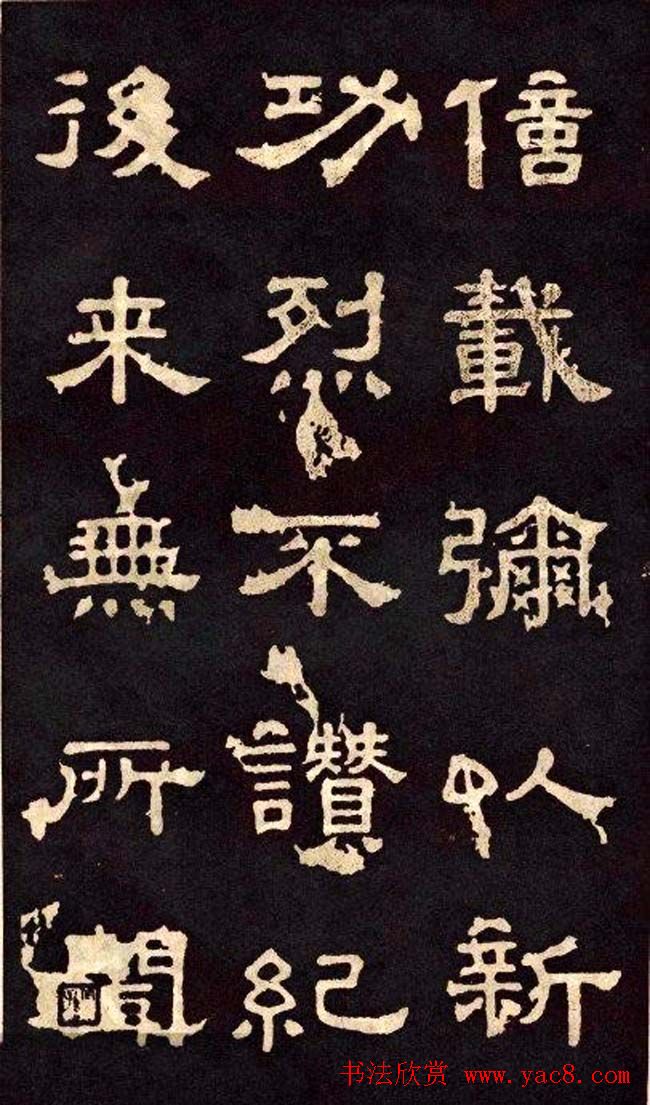 信載彌以新
功烈不讚紀
後来無所聞
书法欣赏 www.yac8.com